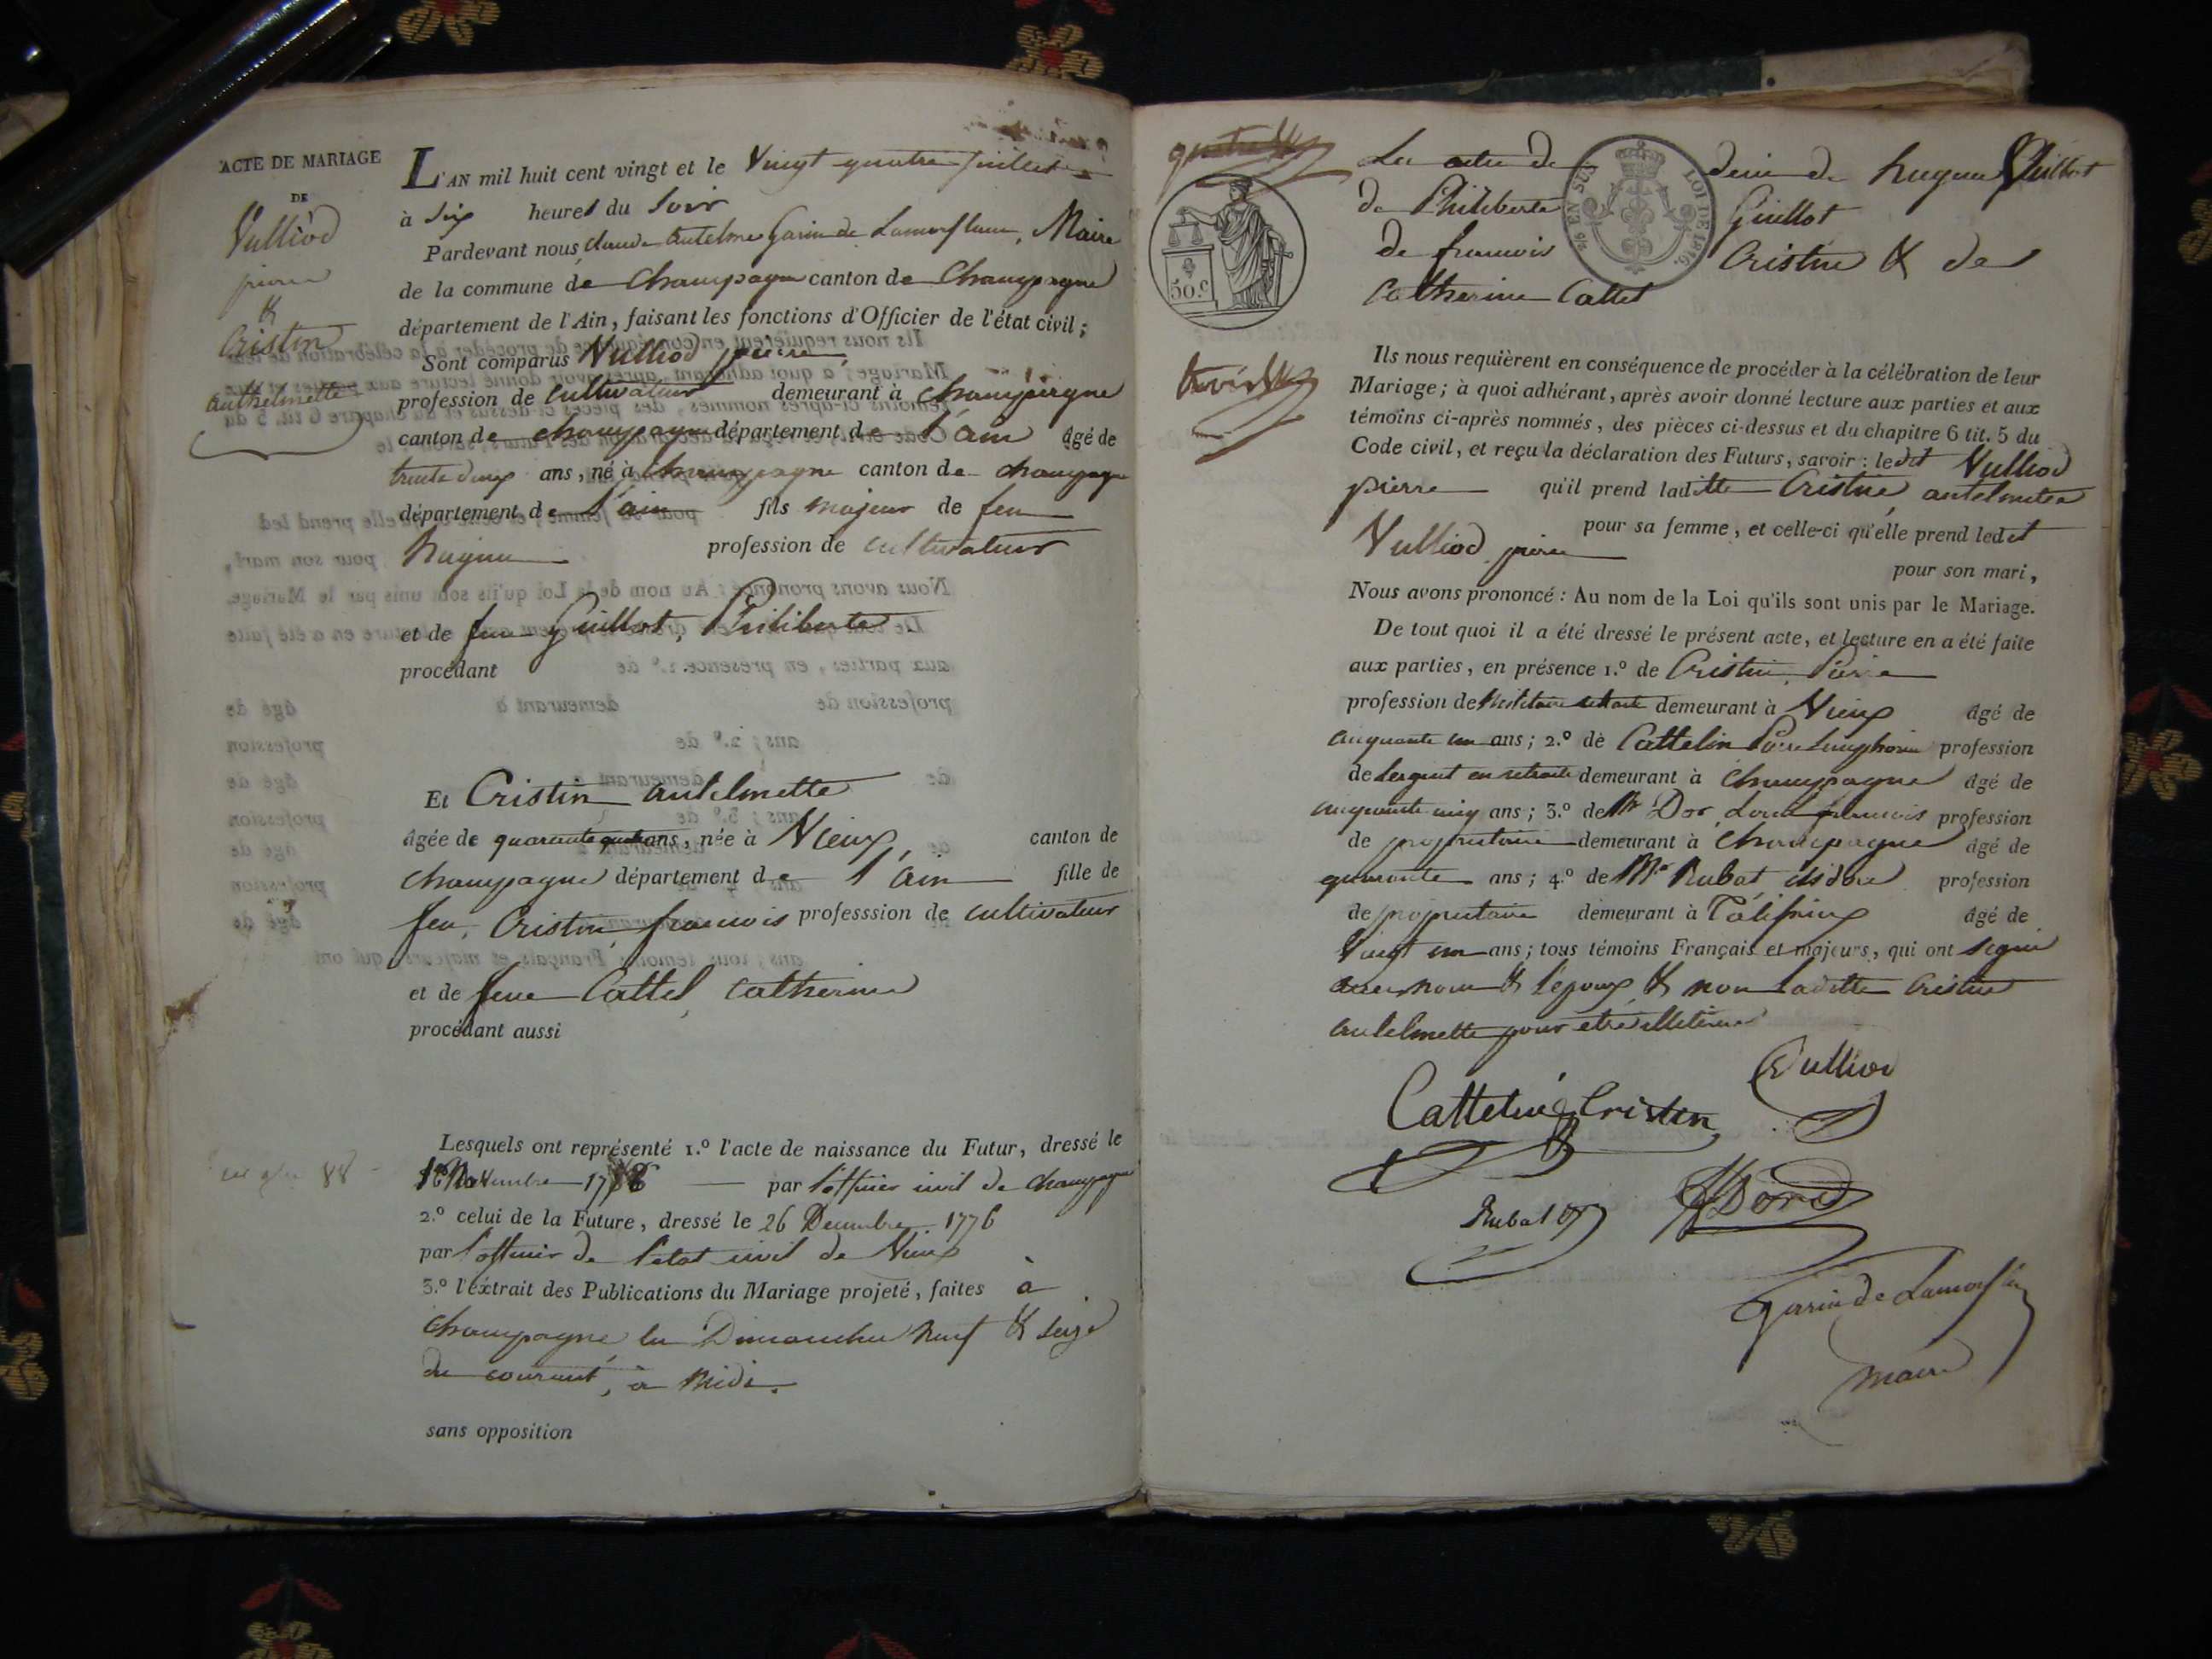 ACTE DE MARIAGE
DE
Vulliod
pierre
&
Cristin
anthelmette
L'AN mil huit cent vingt et le Vingt quatre juillet
à six heures du soir
Pardevant nous, claude antelme Garin de Lamorflam, Maire
de la commune de Champagne canton de Champagne
département de l'Ain, faisant les fonctions d'Officier de l'état civil;
Sont comparus Vulliod pierre
profession de cultivateur demeurant à champagne
canton de champagne département de l'ain âgé de
trente deux ans, né à Champagne canton de champagne
département de l'ain fils majeur de feu
hugue profession de cultivateur
et de feue Guillot, Philiberte
procédant
Et Cristin antelmette
âgée de quarante quatre ans, née à Vieux, canton de
champagne département de l'ain fille de
feu, Cristin françois professsion de cultivateur
et de feue Cattel, catherine
procédant aussi
Lesquels ont représenté 1.º l'acte de naissance du Futur, dressé le
Novembre 17 par l'officier civil de champagne
2.º celui de la Future, dressé le 26 Decembre 1776
par l'officier de l'etat civil de Vieux
3.º l'extrait des Publications du Mariage projeté, faites à
champagne les Dimanches neuf & seize
du courant, à midi.
sans opposition
quatre
50.c
trois
Les actes de deces de hugue Vulliod
de Philiberte Guillot
de francois Cristin & de
Catherine Cattel
EN SUS LOI DE 1816.
Ils nous requièrent en conséquence de procéder à la célébration de leur
Mariage; à quoi adhérant, après avoir donné lecture aux parties et aux
témoins ci-après nommés, des pièces ci-dessus et du chapitre 6 tit. 5 du
Code civil, et reçu la déclaration des Futurs, savoir: ledit Vulliod
pierre qu'il prend laditte Cristin antelmette
pour sa femme, et celle-ci qu'elle prend ledit
Vulliod pierre
pour son mari,
Nous avons prononcé: Au nom de la Loi qu'ils sont unis par le Mariage.
De tout quoi il a été dressé le présent acte, et lecture en a été faite
aux parties, en présence 1.º de Cristin Pierre
profession de militaire retraité demeurant à Vieux âgé de
cinquante un ans; 2.º de Cattelin Pierre Simphorien profession
de sergent en retraite demeurant à Champagne âgé de
cinquante cinq ans; 3.º de Mr Dor, Louis francois profession
de proprietaire demeurant à Champagne âgé de
quarante ans; 4.º de Mr Rubat isidore profession
de proprietaire demeurant à Talissieux âgé de
Vingt un ans; tous témoins Français et majeurs, qui ont signé
avec nous & l'epoux & non laditte Cristin
antelmette pour etre illeteree
Vulliod
Cattelin Cristin
Rubat Dor
Garin de Lamorflam
maire